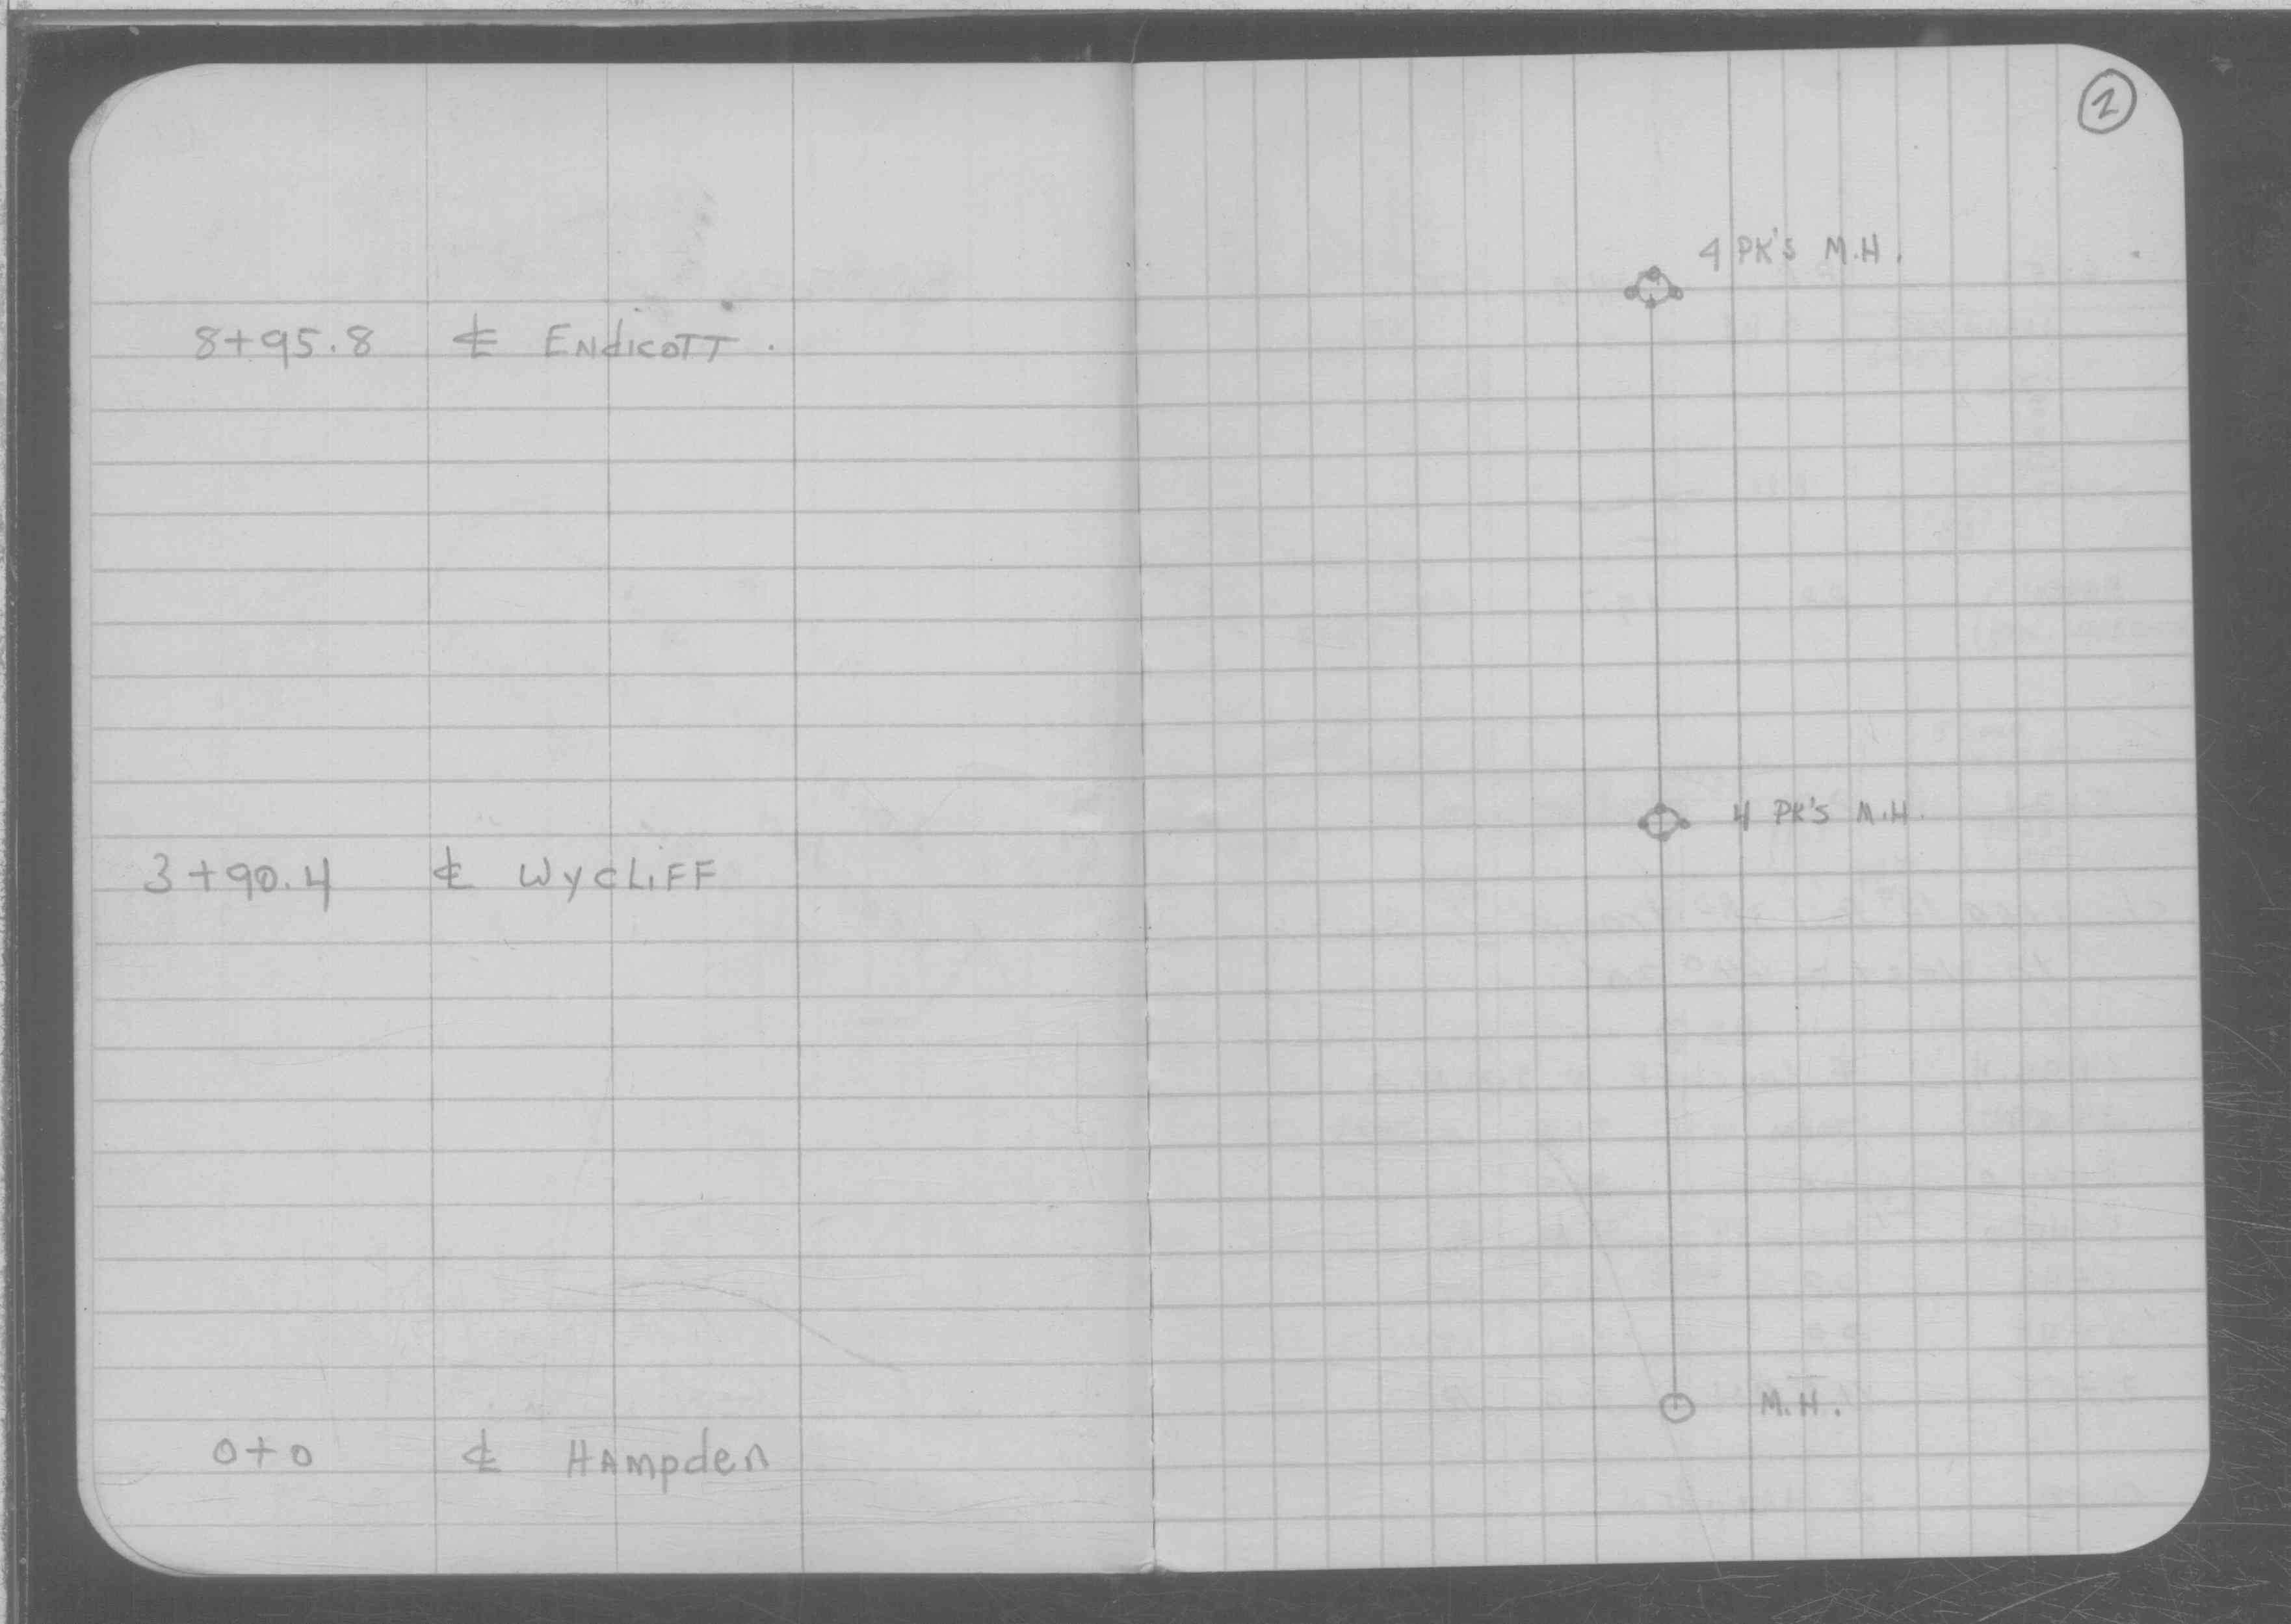 2
4 PK'S M.H.
8+95.8 ℄ ENdICOTT.
4 PK'S M.H.
3+90.4 ℄ WYCLIFF
M.H.
0+0 ℄ HAMPden